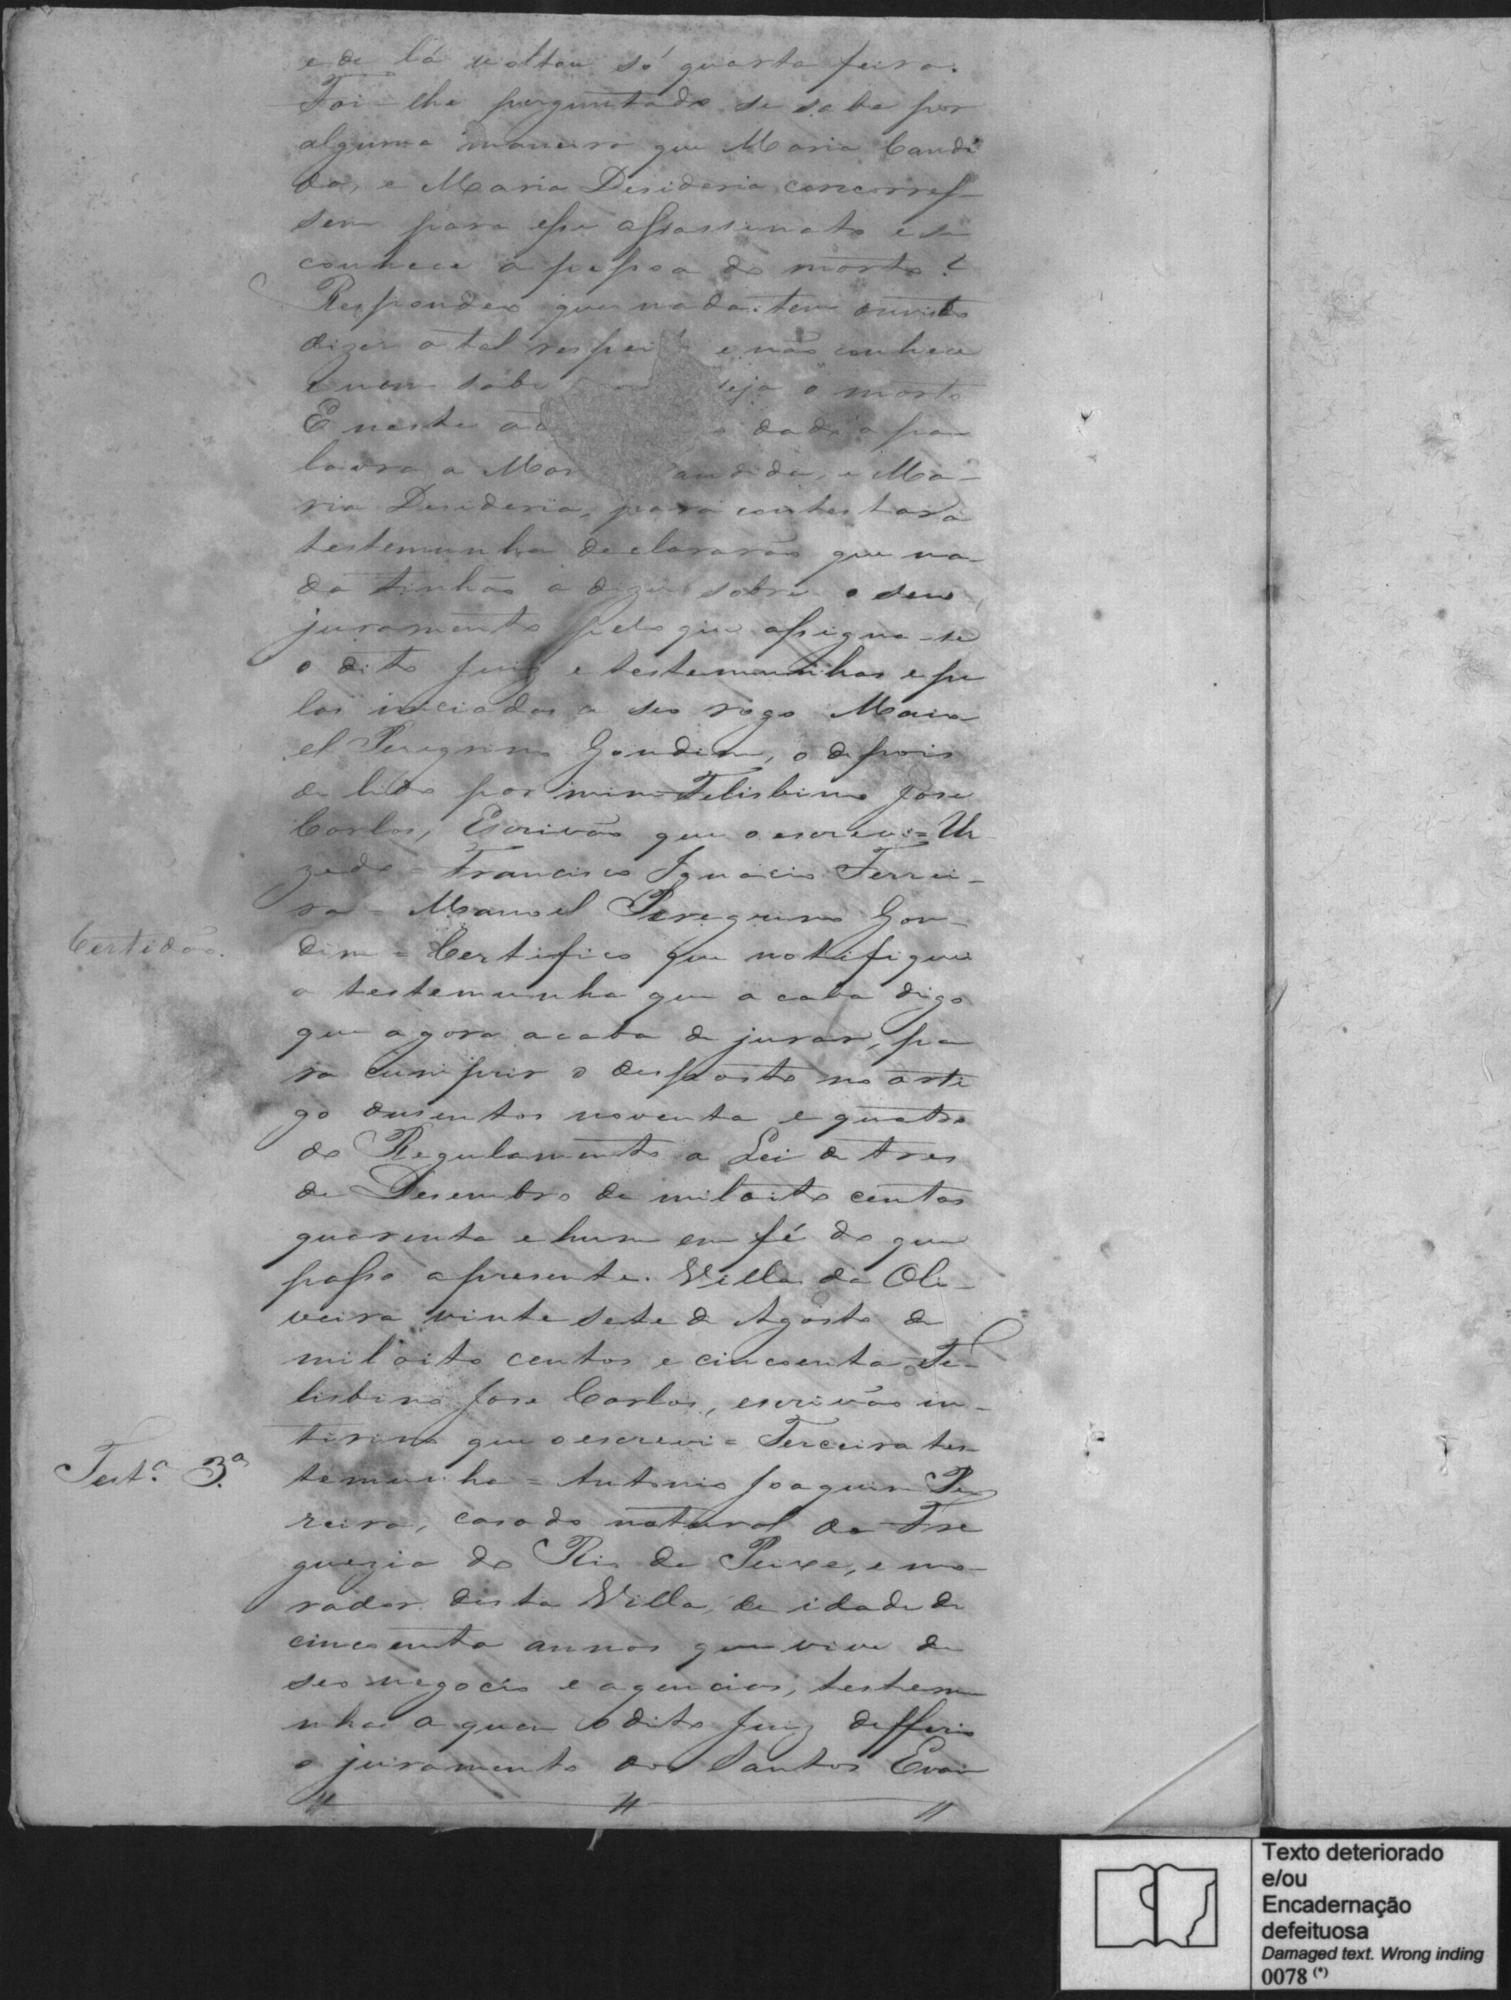 e de lá voltou só quarta feira.
Foi-lhe perguntado se sabe por
alguma maneira que Maria Candi
da, e Maria Desideria concorres-
sem para esse assassinato e se
conhece a pessoa do morto?
Respondeo que nada tem ouvido
dizer a tal respei e não conhece
e nem sabe seja o morto
E neste ac dada a pa
lavra a Mar andida, e Ma-
ria Desideria, para contestar a
testemunha declararão que na-
da tinhão a dizer sobre o seu
juramento pelo que assigna-se
o dito Juiz e testemunhas e pe
las iniciadas a seo rogo Mano
el Peregrino Gondim, o depois
de lido por mim Felisbino Jose
Carlos, Escrivão que o escrevi = Ur
zedo = Francisco Ignacio Ferrei-
ra = Manoel Peregrino Gon-
Certidão.
dim = Certifico que notifiquei
a testemunha que acaba digo
que agora acaba de jurar, pa
ra cumprir o desposto no arti
go dusentos noventa e quatro
do Regulamento a Lei de tres
de Desembro de mil oito centos
quarenta e hum em fé do que
passo apresente. Villa da Oli-
veira vinte sete de Agosto de
mil oito centos e cincoenta = Fe-
lisbino Jose Carlos, escrivão in-
terino que o escrevi = Terceira tes
Test.ª 3.ª
temunha = Antonio Joaquim Pe
reira, casado natural da Fre
guezia do Rio do Peixe, e mo-
rador desta Villa, de idade de
cincoenta annos que vive de
seo negocio e agencias, testemu
nha a quem o dito Juiz defferio
o juramento dos Santos Evan
Texto deteriorado
e/ou
Encadernação
defeituosa
Damaged text. Wrong inding
0078 (*)